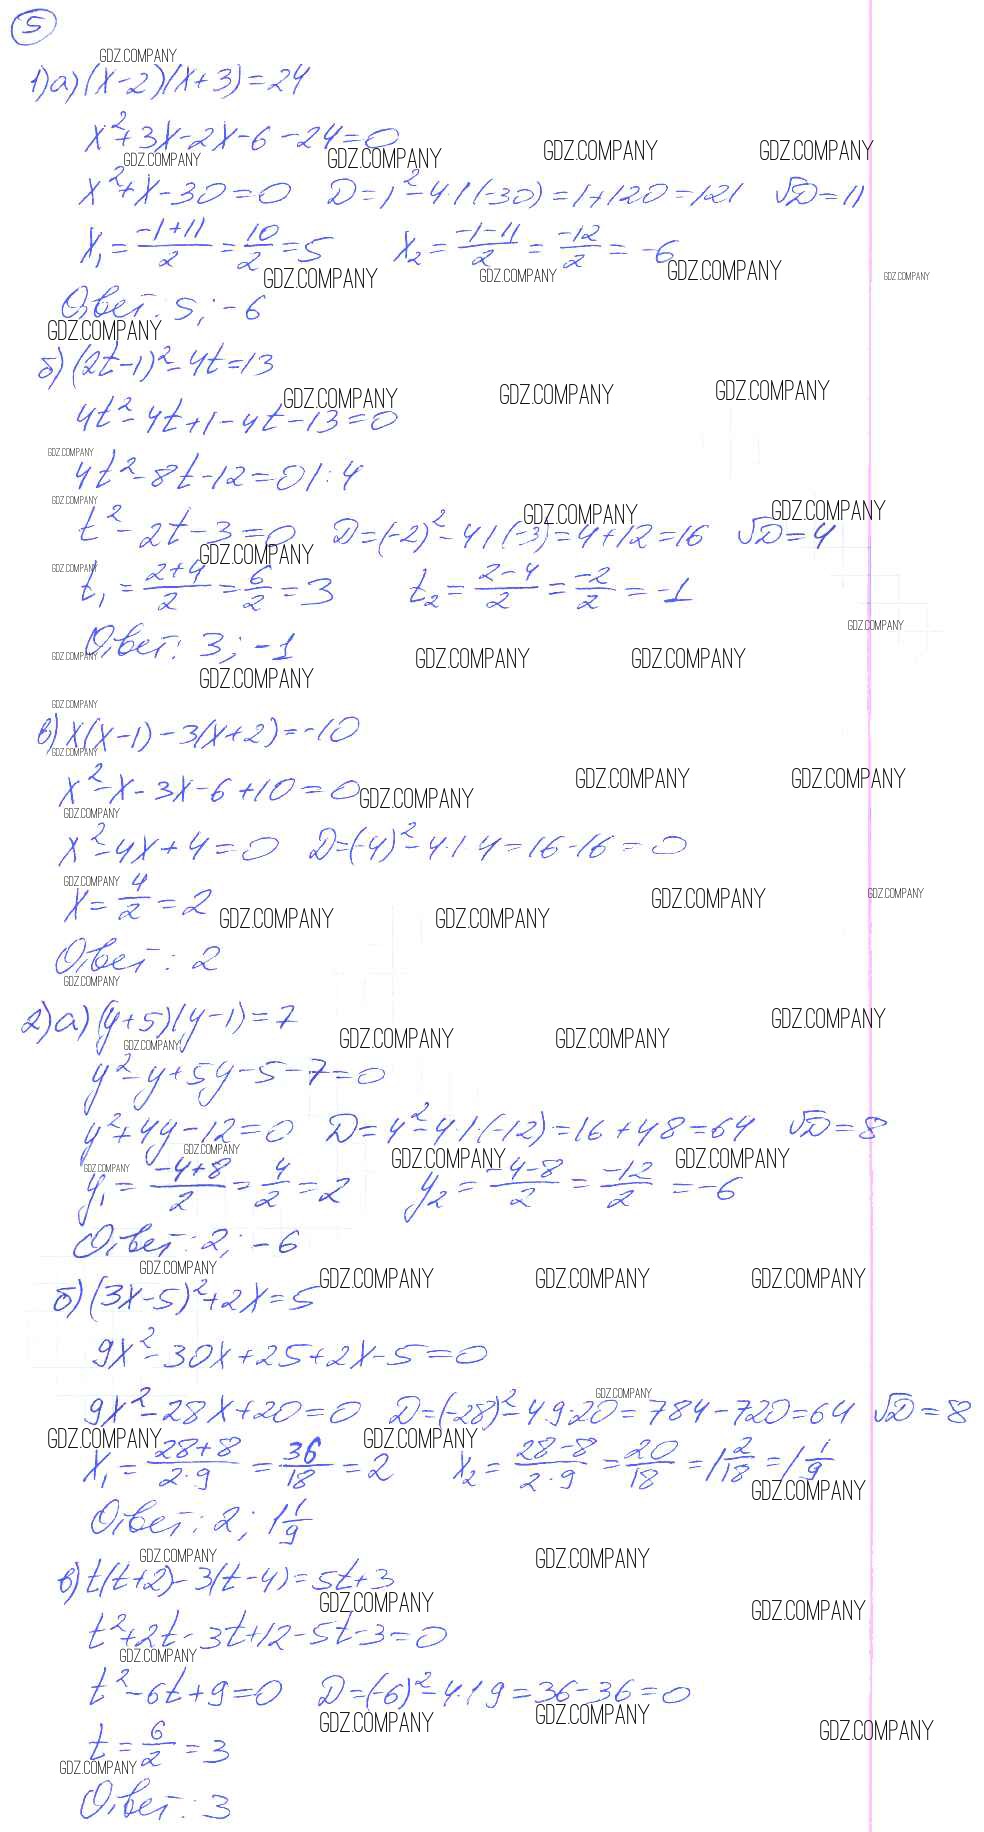 5
GDZ.COMPANY
1) а) (x-2)(x+3)=24
x²+3x-2x-6-24=0
GDZ.COMPANY GDZ.COMPANY GDZ.COMPANY GDZ.COMPANY
x²+x-30=0 D=1²-4·1(-30)=1+120=121 √D=11
x₁=(-1+11)/2=10/2=5 x₂=(-1-11)/2=-12/2=-6
GDZ.COMPANY GDZ.COMPANY GDZ.COMPANY GDZ.COMPANY
Ответ: 5; -6
GDZ.COMPANY
б) (2t-1)²-4t=13
GDZ.COMPANY GDZ.COMPANY GDZ.COMPANY
4t²-4t+1-4t-13=0
GDZ.COMPANY
4t²-8t-12=0 |:4
GDZ.COMPANY GDZ.COMPANY GDZ.COMPANY
t²-2t-3=0 D=(-2)²-4·1(-3)=4+12=16 √D=4
GDZ.COMPANY GDZ.COMPANY
t₁=(2+4)/2=6/2=3 t₂=(2-4)/2=-2/2=-1
GDZ.COMPANY
Ответ: 3; -1
GDZ.COMPANY GDZ.COMPANY GDZ.COMPANY
GDZ.COMPANY
GDZ.COMPANY
в) x(x-1)-3(x+2)=-10
GDZ.COMPANY GDZ.COMPANY GDZ.COMPANY
x²-x-3x-6+10=0
GDZ.COMPANY GDZ.COMPANY
x²-4x+4=0 D=(-4)²-4·1·4=16-16=0
GDZ.COMPANY GDZ.COMPANY GDZ.COMPANY
x=4/2=2
GDZ.COMPANY GDZ.COMPANY
Ответ: 2
GDZ.COMPANY
2) а) (y+5)(y-1)=7
GDZ.COMPANY GDZ.COMPANY GDZ.COMPANY GDZ.COMPANY
y²-y+5y-5-7=0
y²+4y-12=0 D=4²-4·1·(-12)=16+48=64 √D=8
GDZ.COMPANY GDZ.COMPANY GDZ.COMPANY GDZ.COMPANY
y₁=(-4+8)/2=4/2=2 y₂=(-4-8)/2=-12/2=-6
Ответ: 2; -6
GDZ.COMPANY GDZ.COMPANY GDZ.COMPANY GDZ.COMPANY
б) (3x-5)²+2x=5
9x²-30x+25+2x-5=0
GDZ.COMPANY
9x²-28x+20=0 D=(-28)²-4·9·20=784-720=64 √D=8
GDZ.COMPANY GDZ.COMPANY
x₁=(28+8)/(2·9)=36/18=2 x₂=(28-8)/(2·9)=20/18=1 2/18=1 1/9
GDZ.COMPANY
Ответ: 2; 1 1/9
GDZ.COMPANY GDZ.COMPANY
в) t(t+2)-3(t-4)=5t+3
GDZ.COMPANY GDZ.COMPANY
t²+2t-3t+12-5t-3=0
GDZ.COMPANY
t²-6t+9=0 D=(-6)²-4·1·9=36-36=0
GDZ.COMPANY GDZ.COMPANY GDZ.COMPANY
t=6/2=3
GDZ.COMPANY
Ответ: 3